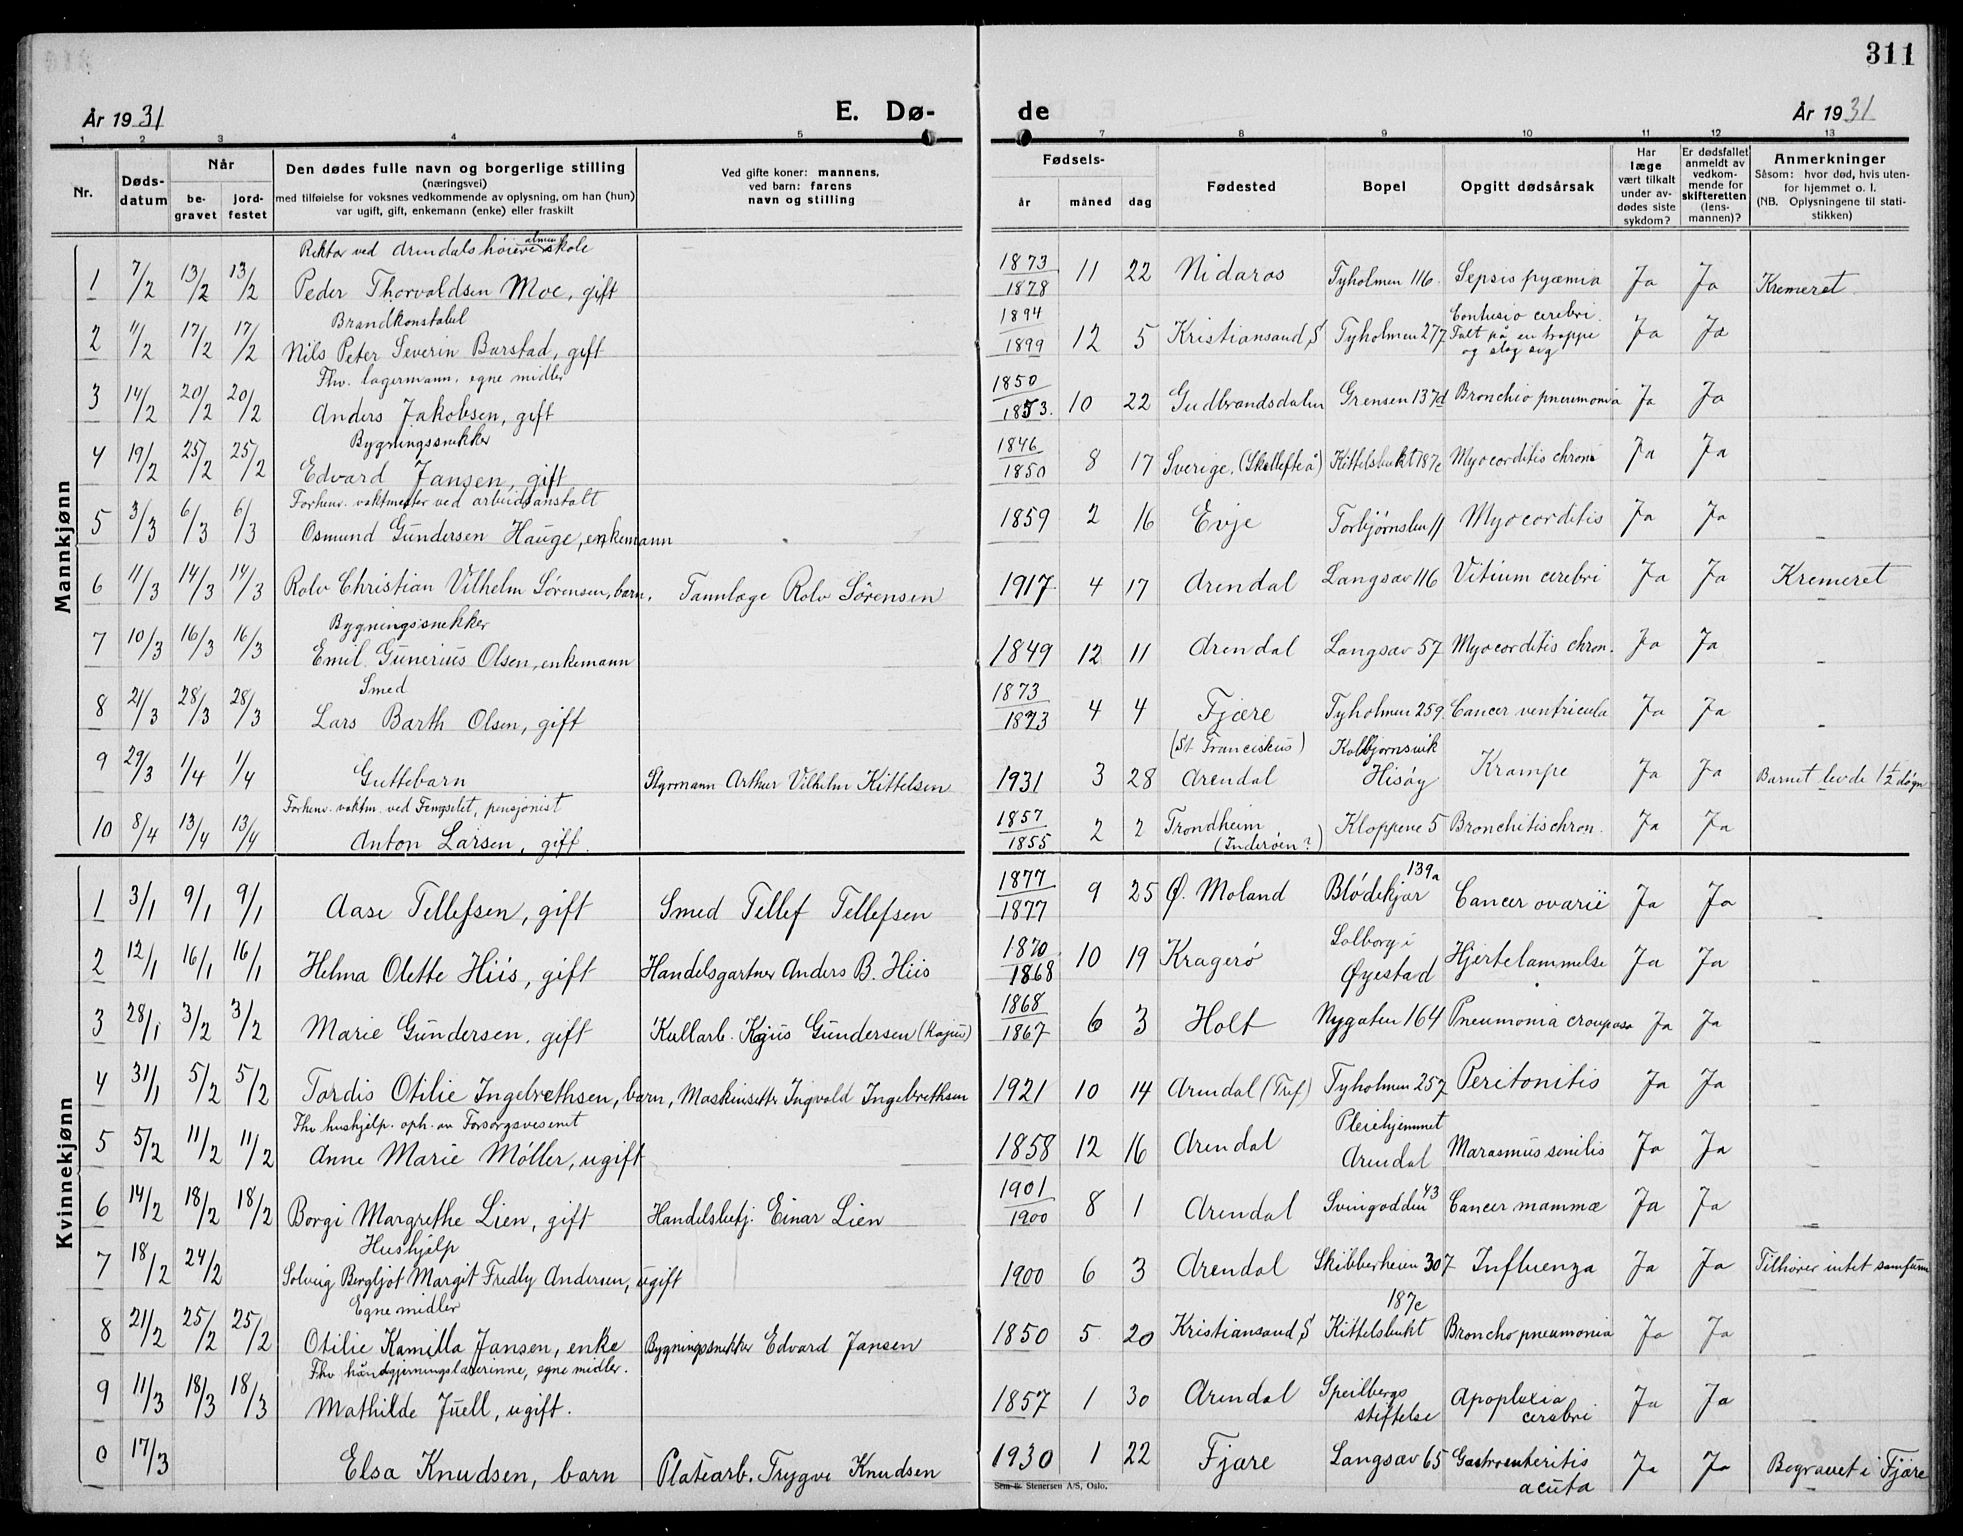 311
År 1931 E. Dø-de År 1931
1 2 3 4 5 7 8 9 10 11 12 13
Nr. Dødsdatum Når begravet jordfestet
Den dødes fulle navn og borgerlige stilling
(næringsvei)
med tilføielse for voksnes vedkommende av oplysning, om han (hun)
var ugift, gift, enkemann (enke) eller fraskilt
Ved gifte koner: mannens,
ved barn: farens
navn og stilling
Fødsels-
år måned dag
Fødested
Bopel
Opgitt dødsårsak
Har
læge
vært tilkalt
under av-
dødes siste
sykdom?
Er dødsfallet
anmeldt av
vedkom-
mende for
skifteretten
(lens-
mannen)?
Anmerkninger
Såsom: hvor død, hvis uten-
for hjemmet o. l.
(NB. Oplysningene til stati-
stikken)
Mannkjønn
Rektor ved Arendals høiere almenskole
1 7/2 13/2 13/2 Peder Thorvaldsen Moe, gift 1873 1878 11 22 Nidaros Tyholmen 116. Sepsis pyæmia Ja Ja Kremeret.
Brandkonstabel
2 11/2 17/2 17/2 Nils Peter Severin Barstad, gift 1894 1899 12 5 Kristiansand, S Tyholmen 277 Contusio cerebri. Falt på en trappe og slog sig Ja Ja
Fhv. lagermann. egne midler
3 14/2 20/2 20/2 Anders Jakobsen, gift 1850 1853. 10 22 Gudbrandsdalen Grensen 137d Bronchio pneumonia Ja Ja
Bygningssnekker
4 19/2 25/2 25/2 Edvard Jansen, gift 1846 1850 8 17 Sverige. (Skellefteå) Kittelsbukt 187c Myocarditis chron Ja Ja
Forhenv. vaktmester ved arbeidsanstalt
5 3/3 6/3 6/3 Osmund Gundersen Hauge, enkemann 1859 2 16 Evje Torbjørnsbu 11 Myocarditis Ja Ja
6 11/3 14/3 14/3 Rolv Christian Vilhelm Sørensen, barn. Tannlæge Rolv Sørensen 1917 4 17 Arendal Langsæv 116 Vitium cerebri Ja Ja Kremeret
Bygningssnekker
7 10/3 16/3 16/3 Emil Gunerius Olsen, enkemann 1849 12 11 Arendal Langsæv 57 Myocarditis chron. Ja Ja
Smed
8 21/3 28/3 28/3 Lars Barth Olsen, gift 1873 1873 4 4 Fjære Tyholmen 259. Cancer ventricula Ja Ja
9 29/3 1/4 1/4 Guttebarn Styrmann Arthur Vilhelm Kittelsen 1931 3 28 (St. Franciskus) Arendal Kolbjørnsvik Hisøy Krampe Ja Ja Barnet levde 1½ døgn
Forhenv. vaktm. ved Fengselet, pensjonist
10 8/4 13/4 13/4 Anton Larsen, gift. 1857 1855 2 2 Trondheim (Inderøen?) Kloppene 5 Bronchitis chron. Ja Ja
Kvinnekjønn
1 3/1 9/1 9/1 Aase Tellefsen, gift Smed Tellef Tellefsen 1877 1877 9 25 Ø. Moland Blødekjær 139a Cancer ovarii Ja Ja
2 12/1 16/1 16/1 Helma Olette Hiis, gift Handelsgartner Anders B. Hiis 1870 1868 10 19 Kragerø Solborg i Øyestad Hjertelammelse Ja Ja
3 28/1 3/2 3/2 Marie Gundersen, gift Kullarb. Kajus Gundersen (Kajus) 1868 1867 6 3 Holt Nygaten 164 Pneumonia crouposa Ja Ja
4 31/1 5/2 5/2 Tordis Otilie Ingebrethsen, barn, Maskinsetter Ingvald Ingebrethsen 1921 10 14 Arendal (Tref) Tyholmen 257 Peritonitis Ja Ja
Fhv. hushjelp. oph. av Forsorgsvesenet
5 5/2 11/2 11/2 Anne Marie Møller, ugift 1858 12 16 Arendal Pleiehjemmet Arendal Marasmus senilis Ja Ja
6 14/2 18/2 18/2 Borgi Margrethe Lien, gift Handelsbetj. Einar Lien 1901 1900 8 1 Arendal Svinoodden 43 Cancer mammæ Ja Ja
Hushjelp
7 18/2 24/2 Solveig Bergljot Margit Fredly Andersen, ugift 1900 6 3 Arendal Skibberheien 307 Influenza Ja Ja Tilhører intet samfunn
Egne midler
8 21/2 25/2 25/2 Otilie Kamilla Jansen, enke Bygningssnekker Edvard Jansen 1850 5 20 Kristiansand, S Kittelsbukt 187c Broncho pneumonia Ja Ja
Fhv håndgjerningslærerinne, egne midler.
9 11/3 18/3 18/3 Mathilde Juell, ugift. 1857 1 30 Arendal Speilbergs stiftelse Apoplexia cerebri Ja Ja
0 17/3 Elsa Knudsen, barn Platearb. Trygve Knudsen 1930 1 22 Fjære Langsæv 65 Gastroenteritis acuta Ja Ja Begravet i Fjære
Sem & Stenersen A/S, Oslo.